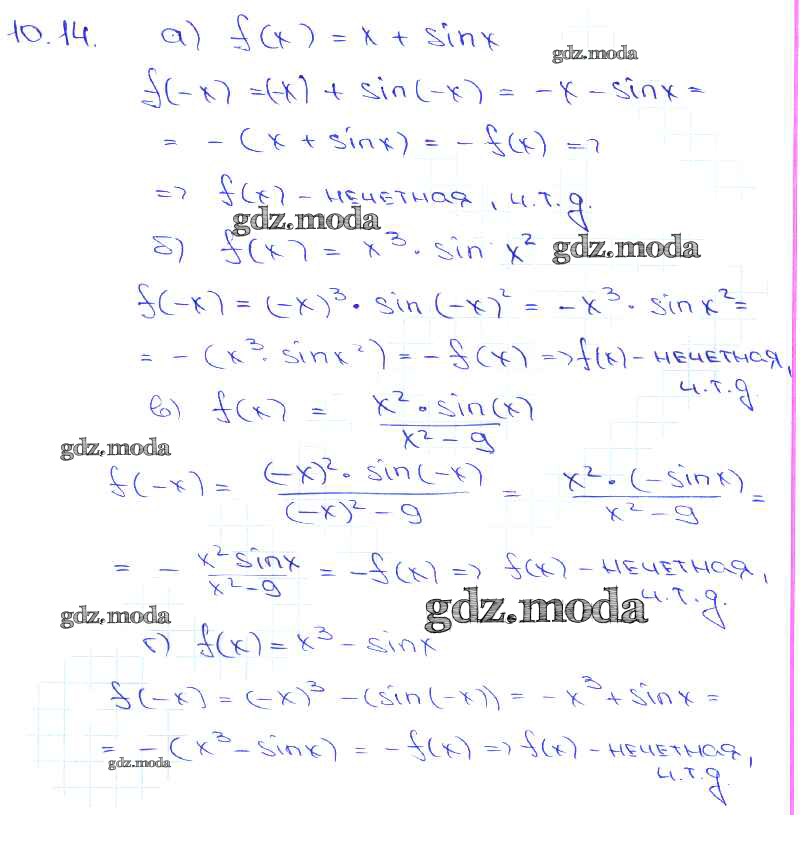 10.14. а) f(x) = x + sinx
gdz.moda
f(-x) =(-x) + sin(-x) = -x - sinx =
= - (x + sinx) = - f(x) =>
=> f(x) - нечетная, ч.т.д.
gdz.moda
б) f(x) = x³ · sin x² gdz.moda
f(-x) = (-x)³ · sin (-x)² = -x³ · sinx² =
= - (x³ · sinx²) = - f(x) => f(x) - нечетная,
ч.т.д.
в) f(x) = x² · sin(x) / x² - 9
gdz.moda
f(-x) = (-x)² · sin(-x) / (-x)² - 9 = x² · (-sinx) / x² - 9 =
= - x² sinx / x² - 9 = -f(x) => f(x) - нечетная,
ч.т.д.
gdz.moda gdz.moda
г) f(x) = x³ - sinx
f(-x) = (-x)³ - (sin(-x)) = -x³ + sinx =
= - (x³ - sinx) = - f(x) => f(x) - нечетная,
gdz.moda
ч.т.д.